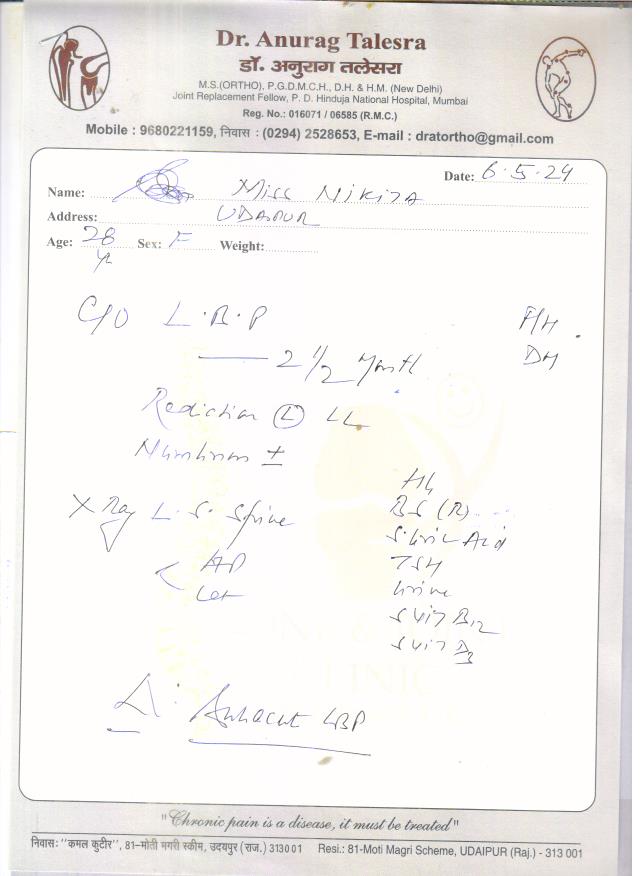 Dr. Anurag Talesra
डॉ. अनुराग तलेसरा
M.S.(ORTHO), P.G.D.M.C.H., D.H. & H.M. (New Delhi)
Joint Replacement Fellow, P. D. Hinduja National Hospital, Mumbai
Reg. No.: 016071 / 06585 (R.M.C.)
Mobile : 9680221159, निवास : (0294) 2528653, E-mail : dratortho@gmail.com
Date: 6.5.24
Name: Miss Nikita
Address: Udaipur
Age: 28 yr Sex: F Weight:
C/O L.B.P
2 1/2 Month
DM
Radiation (L) LL
Numbness ±
X Ray L.S. Spine
AP
Lat
Hb
BS (R)
S. Uric Acid
TSH
Urine
S Vit B12
S Vit D3
Δ: LBP
"Chronic pain is a disease, it must be treated"
निवास: "कमल कुटीर", 81-मोती मगरी स्कीम, उदयपुर (राज.) 313001 Resi.: 81-Moti Magri Scheme, UDAIPUR (Raj.) - 313 001